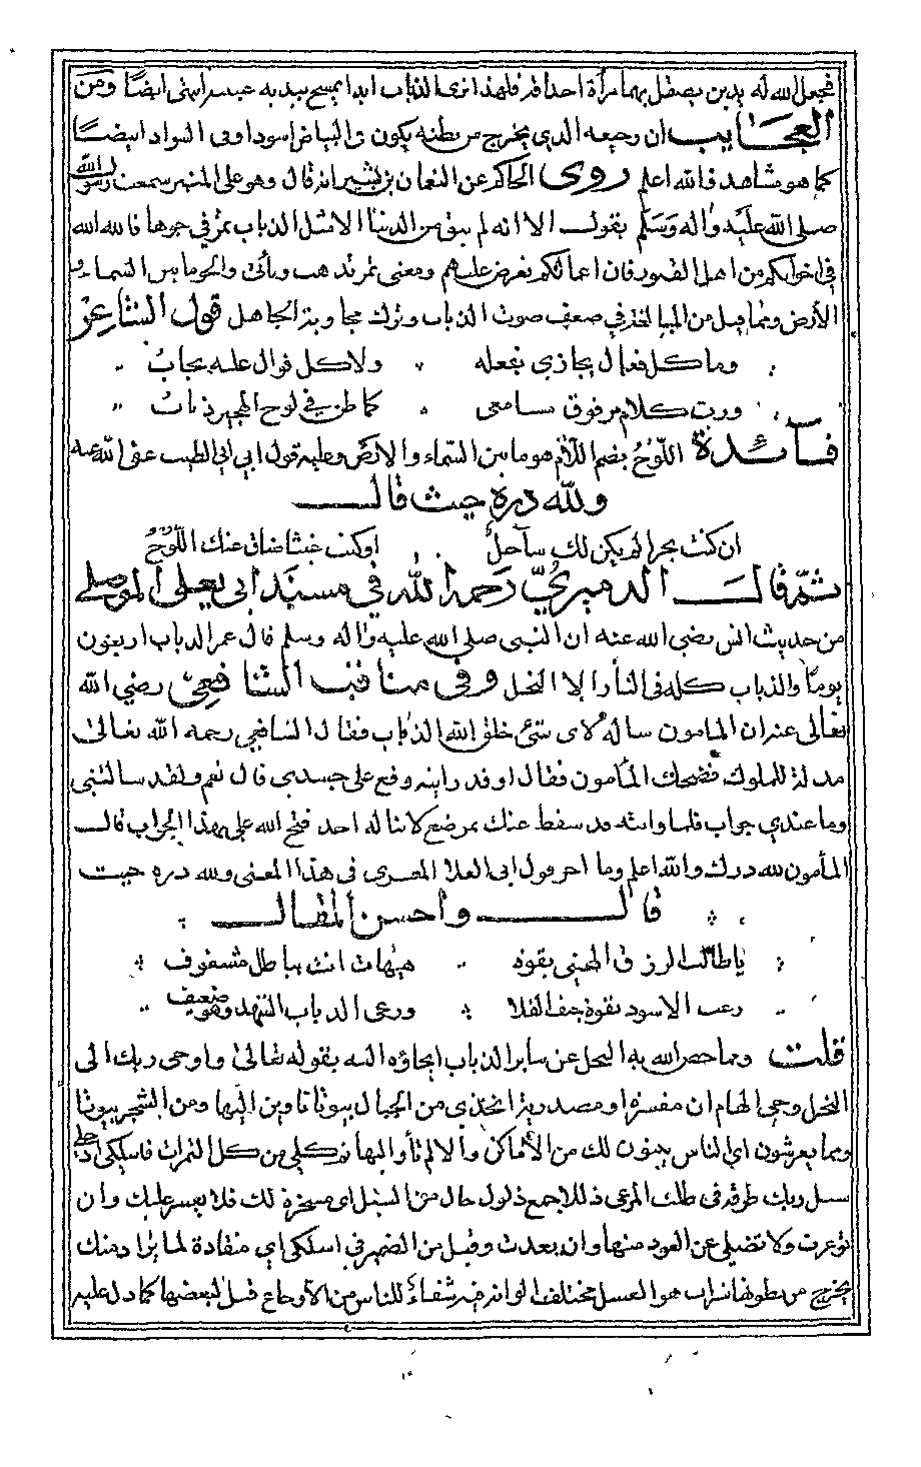 فجعل الله له يدين يصقل بهما مرآة احداقه فلهذا نرى الذباب ابدا يمسح بيديه عينيه انتهى ايضًا ومن
العجَايب ان رجيعه الذي يخرج من بطنه يكون في البياض اسود وفي السواد ابيضًا
كما هو مشاهد فالله اعلم روى الحاكم عن النعمان بن بشير انه قال وهو على المنبر سمعت رسول الله
صلى الله عليه وآله وَسَلم يقول الا انه لم يبق من الدنيا الا مثل الذباب تمر في جوها فالله الله
في اخوانكم من اهل القبور فان اعمالكم تعرض عليهم ومعنى تمر تذهب وتأتي والجو ما بين السماء و
الأرض ومما قيل من المبالغة في ضعف صوت الذباب وترك مجاوبة الجاهل قول الشاعر
وما كل فعال يجازى بفعله ولا كل قوال عليه يجابُ
ورب كلام مر فوق مسامعي كما طن في لوح الهجير ذبابُ
فــائدة اللّوُحُ بضم اللّام هو ما بين السماء والارض وعليه قول ابي الطيب عفى الله عنه
ولله دره حيث قالــ
ان كنت بحرا لم يكن لك ساحلٌ او كنت غيثا ضاق عنك اللّوحُ
ثمّ قالــ الدميريّ رَحمه الله في مسنَد ابي يعلى الموصلي
من حديث انس رضي الله عنه ان النبي صلى الله عليه وآله وسلم قال عمر الذباب اربعون
يوما والذباب كله في النار الا النحل وفي مناقب الشافعيّ رضي الله
تعالى عنه ان المامون ساله لاى شئ خلق الله الذباب فقال الشافعي رحمه الله تعالى
مذلة للملوك فضحك المأمون فقال او قد رايته وقع على جسدي قال نعم ولقد سالتني
وما عندي جواب فلما رايته قد سقط عنك بموضع لا يناله احد فتح الله علي بهذا الجواب قالــ
المأمون لله درك والله اعلم وما احسن قول ابي العلا المعري في هذا المعنى ولله دره حيث
قالــ واحسن المقالــ
يا طالب الرزق الهني بقوة هيهات انت بباطل مشغوف
رعت الاسود بقوة جيف الفلا ورعى الذباب الشهد وهو ضعيف
قلت ومما خص الله به النحل عن ساير الذباب ايحاؤه اليه بقوله تعالى واوحى ربك الى
النحل وحي الهام ان مفسرة او مصدرية اتخذي من الجبال بيوتا تاوين اليها ومن الشجر بيوتا
ومما يعرشون اي الناس يبنون لك من الأماكن والا لم تأو اليها ثم كلي من كل الثمرات فاسلكي ادخلي
سبل ربك طرقه في طلب المرعى ذللا جمع ذلول حال من السبل اى مسخرة لك فلا يعسر عليك وان
توعرت ولا تضلي عن العود منها وان بعدت وقيل من الضمير في اسلكى اي منقادة لما يراد منك
يخرج من بطونها شراب هو العسل مختلف الوانه فيه شفاءٌ للناس من الأوجاع قيل لبعضها كما دل عليه